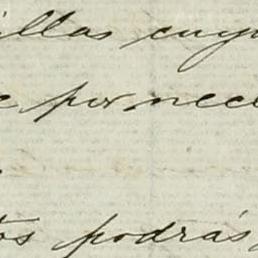 illas cuy
e por nece
tos podrás